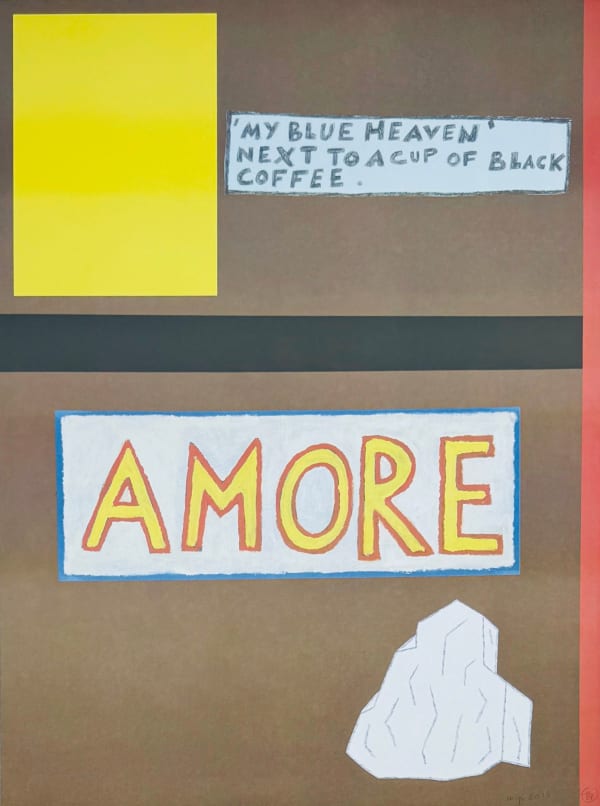 'MY BLUE HEAVEN'
NEXT TO A CUP OF BLACK
COFFEE.
AMORE